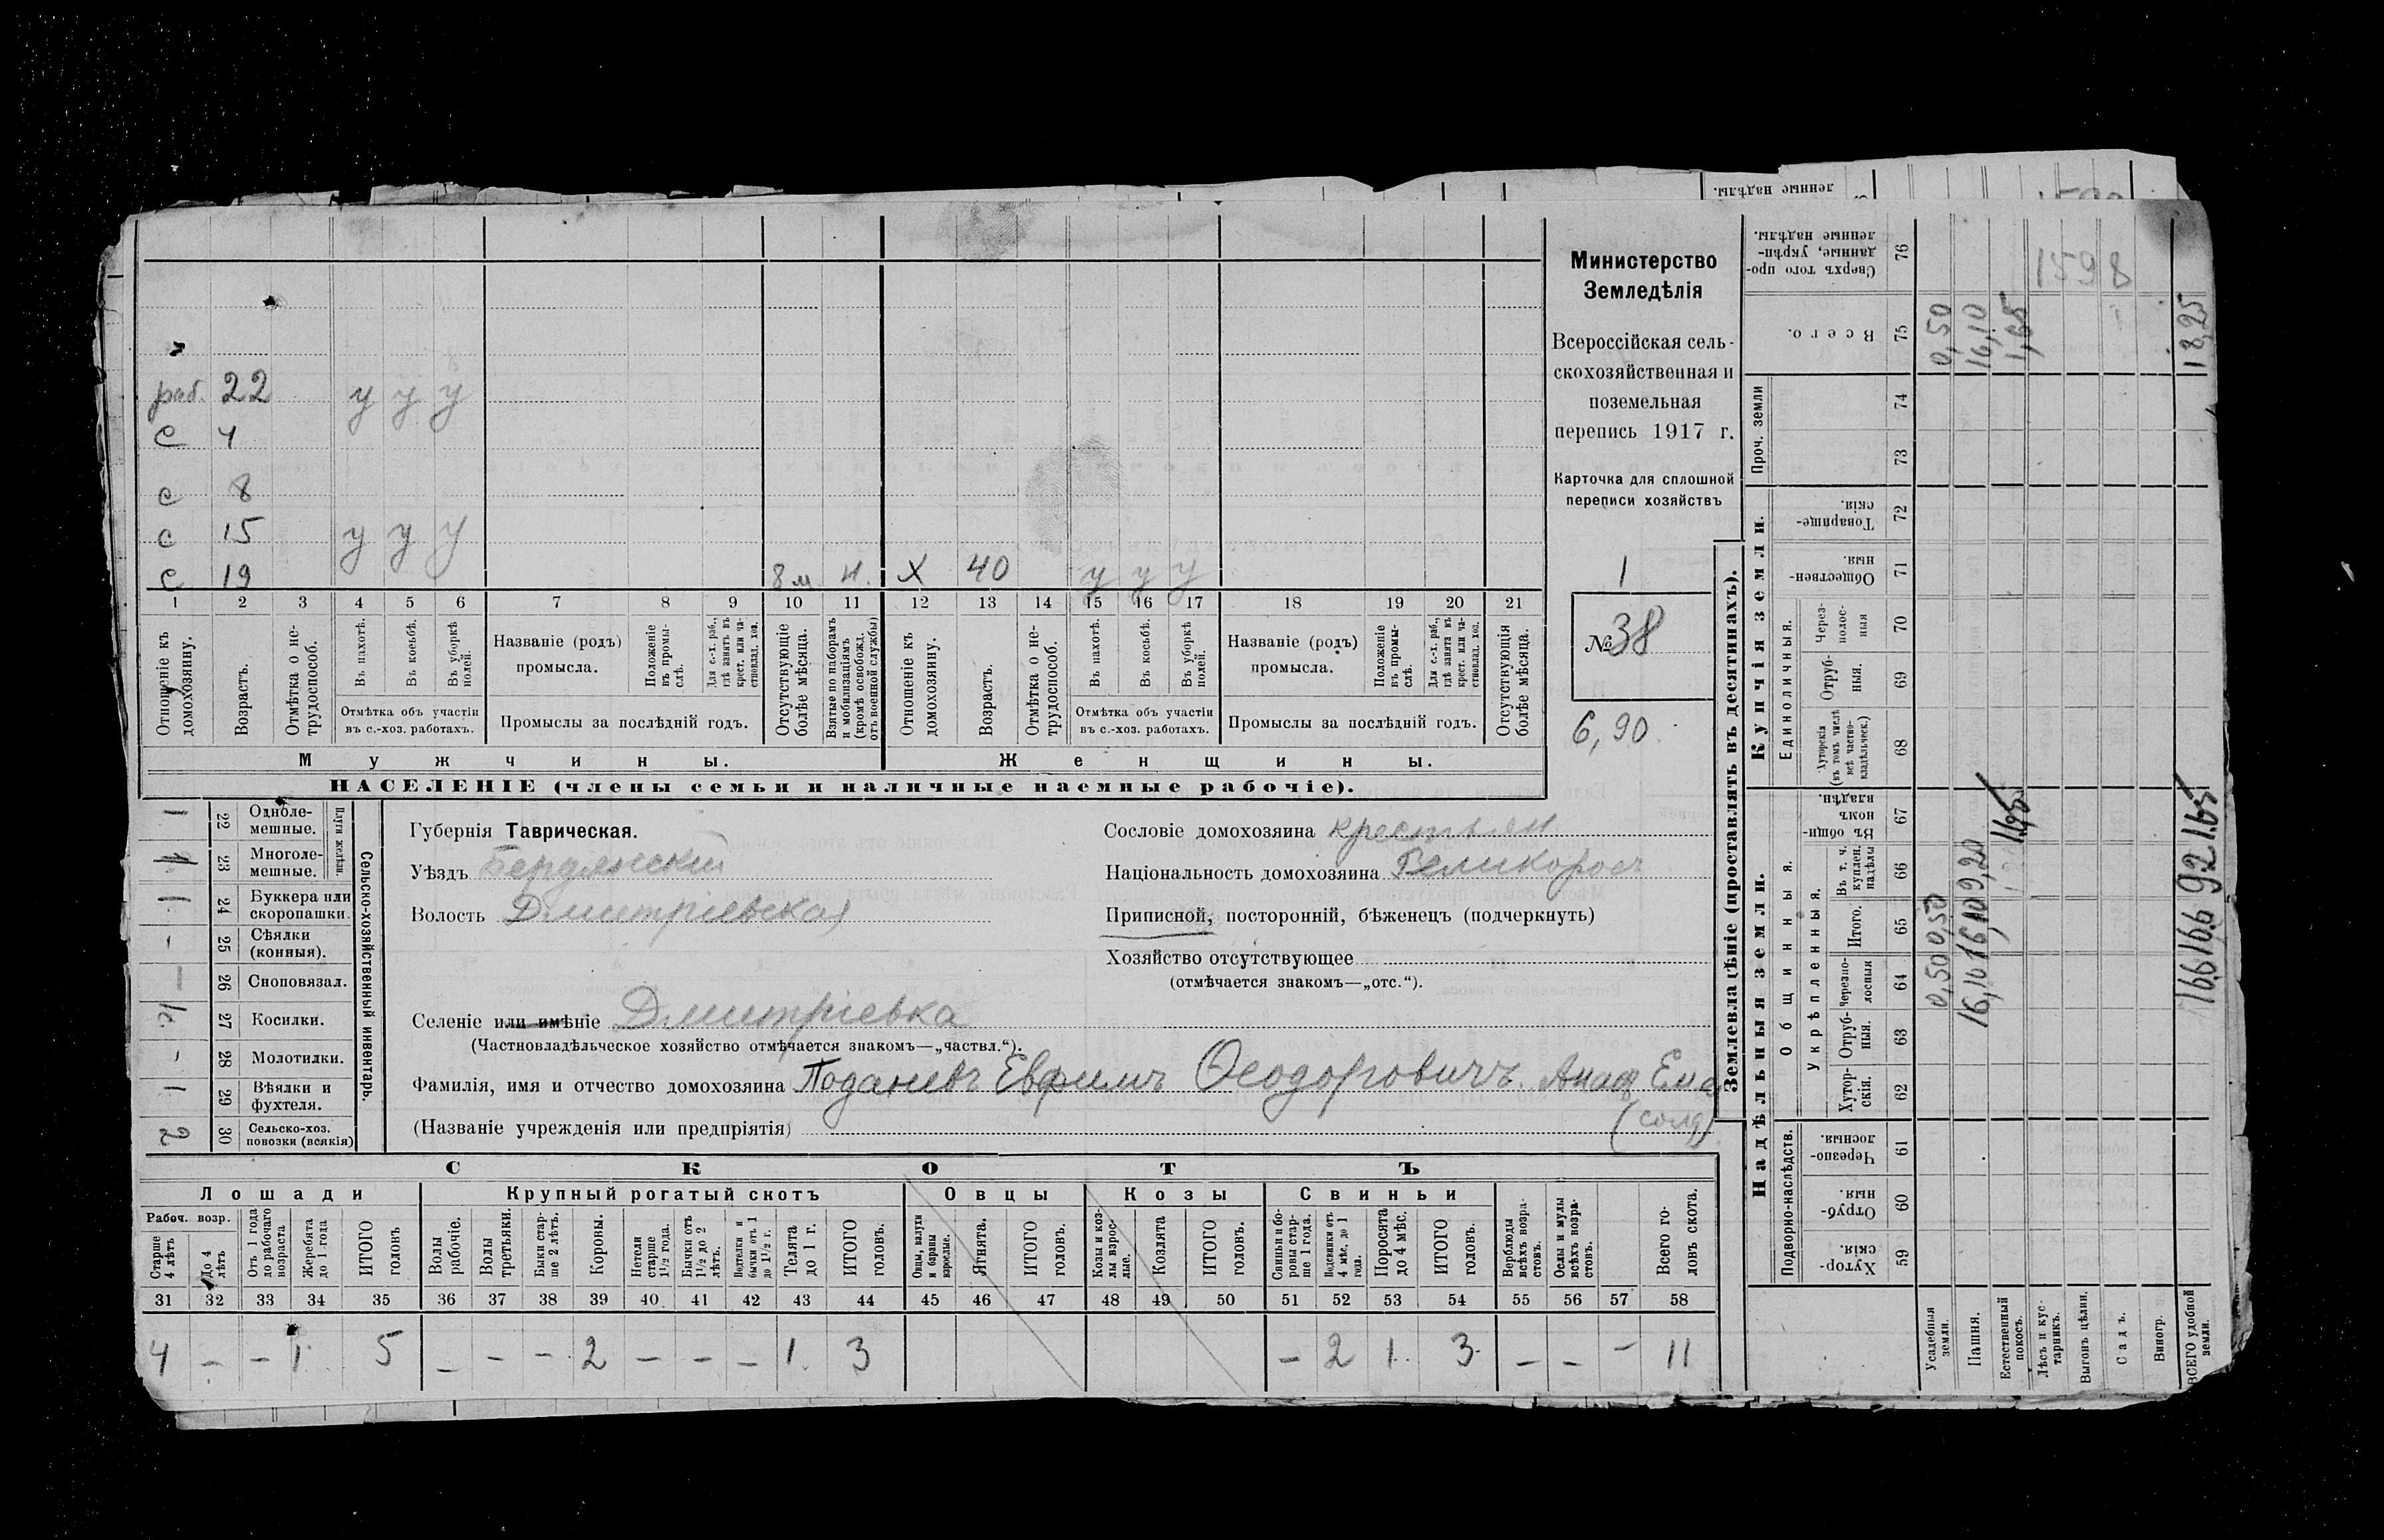 раб. 22 у у у
с 4
с 8
с 15 у у у
с 19 8 м Х 40 у у у
1 2 3 4 5 6 7 8 9 10 11 12 13 14 15 16 17 18 19 20 21
Отношеніе къ домохозяину.
Возрастъ.
Отмѣтка о не-трудоспособ.
Въ пахотѣ.
Въ косьбѣ.
Въ уборкѣ полей.
Отмѣтка объ участіи
въ с.-хоз. работахъ.
Названіе (родъ)
промысла.
Положеніе въ промы-слѣ.
Для с.-х. раб., гдѣ занятъ въ крест. или ча-стновлад. хоз.
Промыслы за послѣдній годъ.
Отсутствующіе болѣе мѣсяца.
Взятые по наборамъ и мобилизаціямъ (кромѣ освобожд. отъ военной службы)
Отношеніе къ домохозяину.
Возрастъ.
Отмѣтка о не-трудоспособ.
Въ пахотѣ.
Въ косьбѣ.
Въ уборкѣ полей.
Отмѣтка объ участіи
въ с.-хоз. работахъ.
Названіе (родъ)
промысла.
Положеніе въ промы-слѣ.
Для с.-х. раб., гдѣ занятъ въ крест. или ча-стновлад. хоз.
Промыслы за послѣдній годъ.
Отсутствующія болѣе мѣсяца.
Мужчины.
Женщины.
НАСЕЛЕНІЕ (члены семьи и наличные наемные рабочіе).
Министерство
Земледѣлія
Всероссійская сель-
скохозяйственная и
поземельная
перепись 1917 г.
Карточка для сплошной
переписи хозяйствъ
1
№ 38
6,90
Сельско-хозяйственный инвентарь.
Плуги желѣзн.
1 22 Однолемешные.
1 23 Многолемешные.
1 24 Буккера или скоропашки.
- 25 Сѣялки (конныя).
- 26 Сноповязал.
27 Косилки.
- 28 Молотилки.
1 29 Вѣялки и фухтеля.
2 30 Сельско-хоз. повозки (всякія)
Губернія Таврическая.
Уѣздъ Бердянскій
Волость Дмитріевская
Сословіе домохозяина крестьян
Національность домохозяина Великоросъ
Приписной, посторонній, бѣженецъ (подчеркнуть)
Хозяйство отсутствующее
(отмѣчается знакомъ—„отс.“).
Селеніе или имѣніе Дмитріевка
(Частновладѣльческое хозяйство отмѣчается знакомъ—„частвл.“).
Фамилія, имя и отчество домохозяина Поданевъ Евфимъ Ѳеодоровичъ
(солд)
(Названіе учрежденія или предпріятія)
СКОТЪ
Лошади
Крупный рогатый скотъ
Овцы
Козы
Свиньи
Рабоч. возр.
Старше 4 лѣтъ
До 4 лѣтъ
Отъ 1 года до рабочаго возраста
Жеребята до 1 года
ИТОГО головъ
Волы рабочіе.
Волы третьяки.
Быки стар-ше 2 лѣтъ.
Коровы.
Нетели старше 1½ года.
Бычки отъ 1½ до 2 лѣтъ.
Подтелки и бычки отъ 1 до 1½ г.
Телята до 1 г.
ИТОГО головъ.
Овцы, валухи и бараны взрослые.
Ягнята.
ИТОГО головъ.
Козы и коз-лы взрос-лые.
Козлята
ИТОГО головъ.
Свиньи и бо-ровы стар-ше 1 года.
Подсвинки отъ 4 мѣс. до 1 года.
Поросята до 4 мѣс.
ИТОГО головъ.
Верблюды всѣхъ возра-стовъ.
Ослы и мулы всѣхъ возра-стовъ.
Всего го-ловъ скота.
31 32 33 34 35 36 37 38 39 40 41 42 43 44 45 46 47 48 49 50 51 52 53 54 55 56 57 58
4 - - 1 5 - - - 2 - - - 1 3 - 2 1 3 - - - 11
Землевладѣніе (проставлять въ десятинахъ).
Надѣльныя земли.
Купчія земли.
Проч. земли
Подворно-наслѣдств.
Общинныя.
Укрѣпленныя.
Единоличныя.
Хутор-скія. 59
Отруб-ныя. 60
Черезпо-лосныя. 61
Хутор-скія. 62
Отруб-ныя. 63
Черезпо-лосныя 64
Итого. 65
Въ т. ч. куплен. надѣлы 66
Въ общин-номъ владѣн. 67
Хуторскія (въ томъ числѣ всѣ частно-владѣльческ.) 68
Отруб-ныя. 69
Черезполос-ныя 70
Обществен-ныя. 71
Товарище-скія. 72
73
74
Всего. 75
Сверхъ того про-данные, укрѣп-ленные надѣлы. 76
Усадебныя земли. 0,50 0,50 0,50
Пашня. 16,10 16,10 9,20 16,10
Естественный покосъ. 1,65 1,65
Лѣсъ и кус-тарникъ.
Выгонъ цѣлин.
Садъ.
Виногр.
ВСЕГО удобной земли. 16,6 16,6 9,2 1,65 18,25
1598